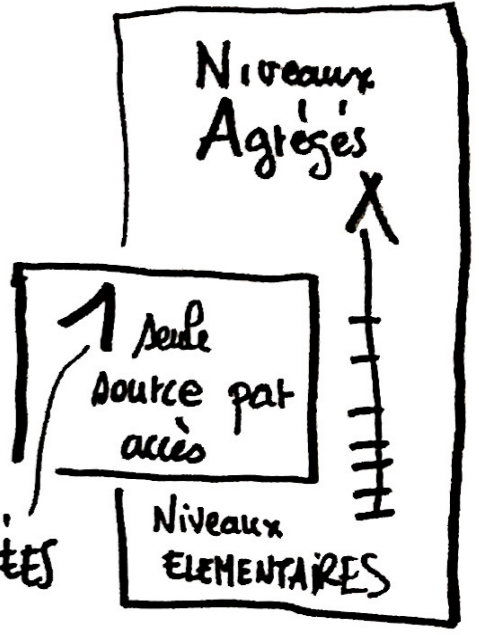 Niveaux
Agrégés
1 seule
source par
accès
Niveaux
ELEMENTAIRES
ÉES